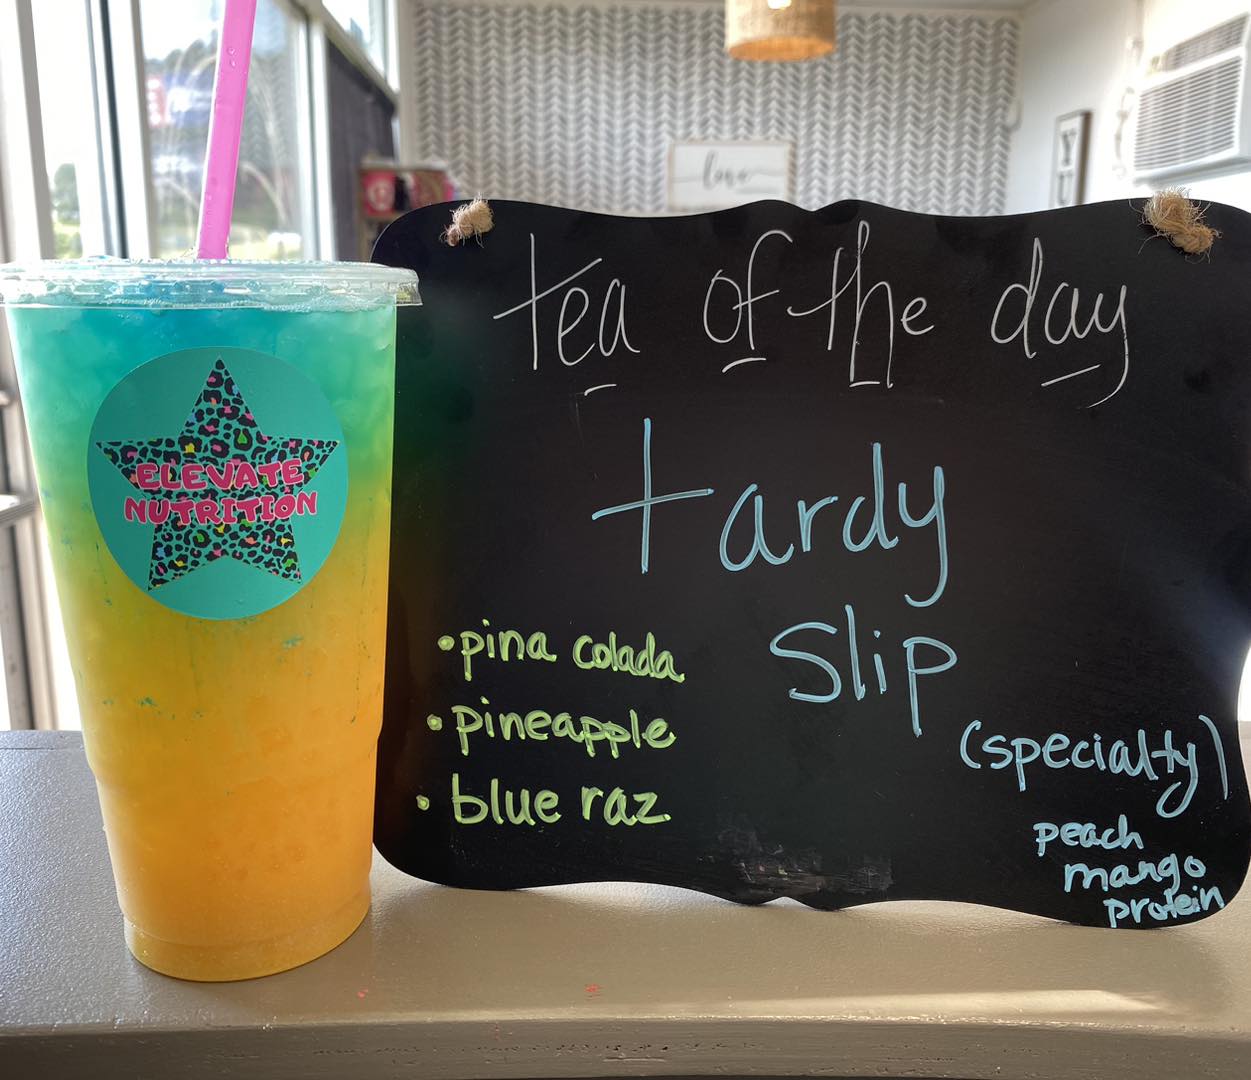 ELEVATE
NUTRITION
love
YOU
tea of the day
tardy
slip
• pina colada
• pineapple
• blue raz
(specialty)
peach
mango
protein